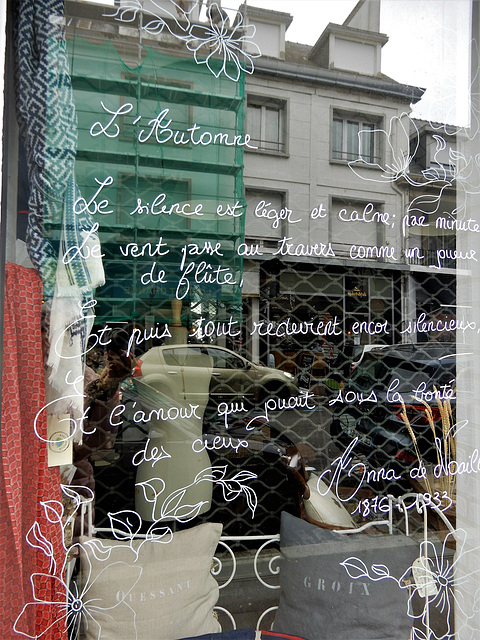 L'Automne
Le silence est léger et calme; par minute
Le vent passe au travers comme un joueur
de flûte,
Et puis tout redevient encor silencieux,
Et l'amour qui jouait sous la bonté
des cieux
Anna de Noail
1876 - 1933
OUESSANT
GROIX